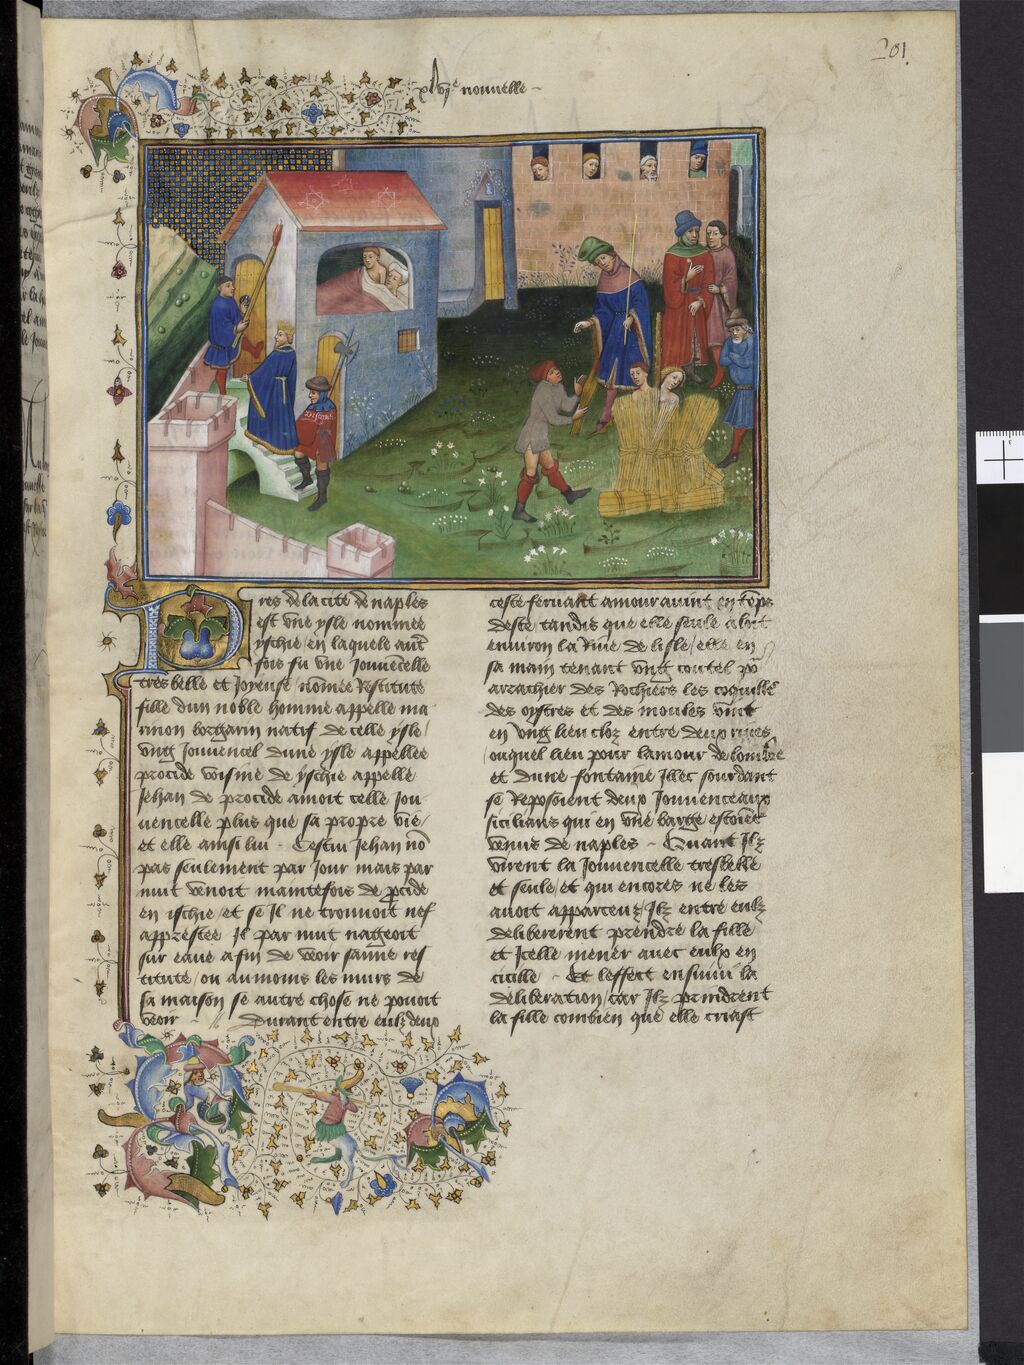 201
nouuelle
res de la cite de naples
est vne ysle nommee
yschie / en laquele aut
fois fu vne Jouuencelle
tres belle et Joyeuse / nomee Restitute
fille dun noble homme appelle ma
rinon bolgarin natif de celle ysle /
vng Jouuencel dune ysle appellee
procide voisine de yschie appelle
Jehan de procide amoit celle Jou
uencelle plus que sa propre vie /
et elle ainsi lui - Cestui Jehan no
pas seulement par Jour mais par
nuit venoit maintefois de procide
en ischie / et se Il ne trouuoit nef
apprestee Il par nuit nageoit
sur eaue afin de veoir sanne res
titute / ou aumoins les murs de
sa maison se autre chose ne pouoit
veoir - Durant entre eulz deux
ceste feruant amour auint en tēps
deste tandis que elle seule aloit
enuiron la Riue de lisle / elle en
sa main tenant vng coutel po
arrachier des Rochiers les coquilles
des oystres et des moules vint
en vng lieu cloz entre deux riues
ouquel lieu pour lamour de lombre
et dune fontaine Illec sourdant
se Reposoient deux Jouuenceaux
sicilians qui en vne barge estoiēt
venus de naples - Quant Ilz
virent la Jouuencelle tresbelle
et seule / et qui encores ne les
auoit apparceuz Ilz entre eulz
delibererent prendre la fille
et Icelle mener auec eulx en
cicille - Et leffect ensuiui la
deliberation / car Ilz prindrent
la fille combien que elle criast